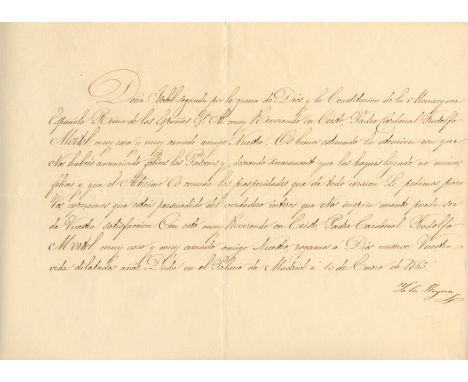 Doña Isabel segunda por la gracia de Dios y la Constitucion de la Monarquia
Española Reina de las Españas &.ª Al muy Reverendo en Cristo Padre Cardenal Teodolfo
Mertel muy caro y muy amado amigo Nuestro. Os hemos estimado la atencion con que
Nos habeis anunciado felices las Pascuas y deseando sinceramente que las hayais logrado no menos
felices y que el Altisimo Os conceda las prosperidades que de todo corazon Le pedimos para
Vos esperamos que esteis persuadido del verdadero interes que Nos inspira cuanto pueda ser
de Vuestra satisfaccion Con esto muy Reverendo en Cristo Padre Cardenal Teodolfo
Mertel muy caro y muy amado amigo Nuestro, rogamos a Dios conserve Vuestra
vida dilatados años. Dada en el Palacio de Madrid a 10 de Enero de 1865.
Yo la Reyna